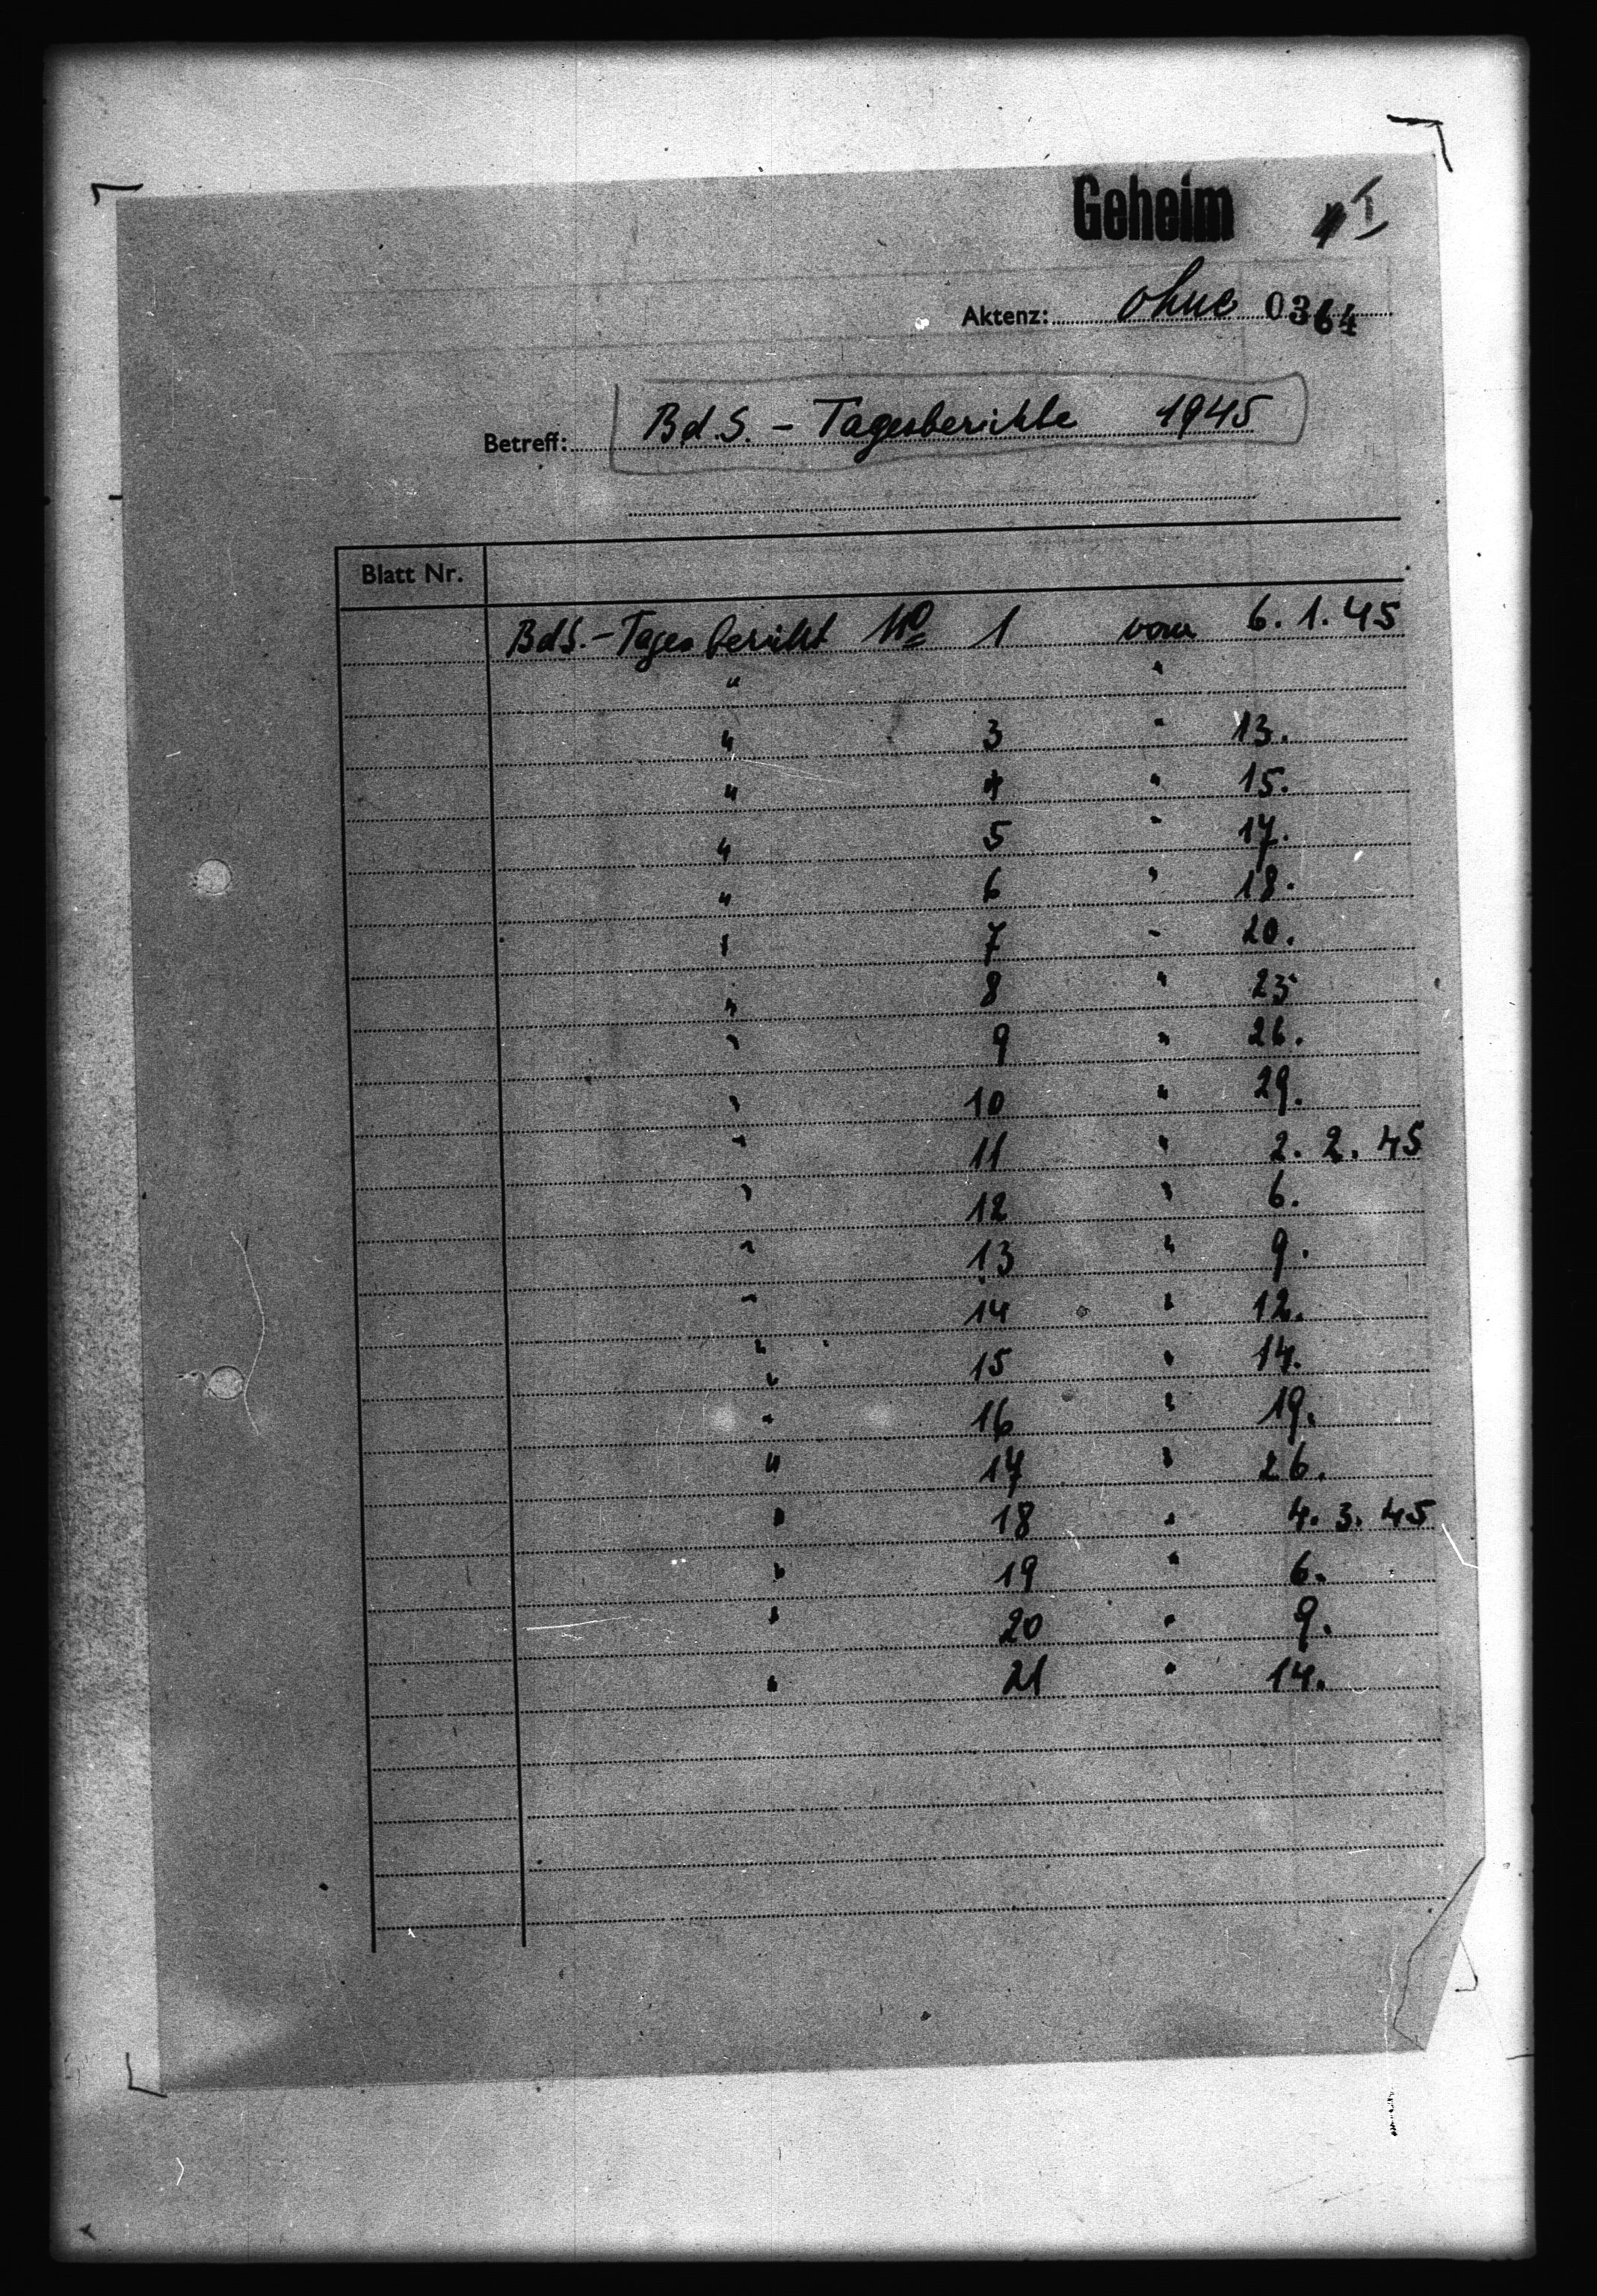 Geheim I
Aktenz: ohne 0364
Betreff: B.d.S. - Tagesberichte 1945
Blatt Nr.
BdS.-Tagesbericht No 1 vom 6. 1. 45
" "
" 3 " 13.
" 4 " 15.
" 5 " 17.
" 6 " 18.
" 7 " 20.
" 8 " 23
" 9 " 26.
" 10 " 29.
" 11 " 2. 2. 45
" 12 " 6.
" 13 " 9.
" 14 " 12.
" 15 " 14.
" 16 " 19.
" 17 " 26.
" 18 " 4. 3. 45
" 19 " 6.
" 20 " 9.
" 21 " 14.